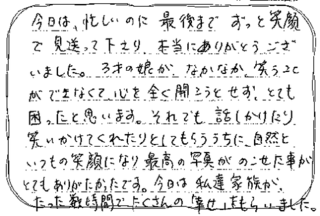 今日は、忙しいのに 最後まで ずっと笑顔
で見送って下さり、本当にありがとうござ
いました。3才の娘が、なかなか、笑うこと
ができなくて、心を全く開こうとせず、とても
困ったと思います。それでも 話しかけたり
笑いかけてくれたりとしてもらううちに、自然と
いつもの笑顔になり 最高の写真が のこせた事が
とてもありがたかったです。今日は 私達家族が、
たった数時間で たくさんの「幸せ」をもらいました。